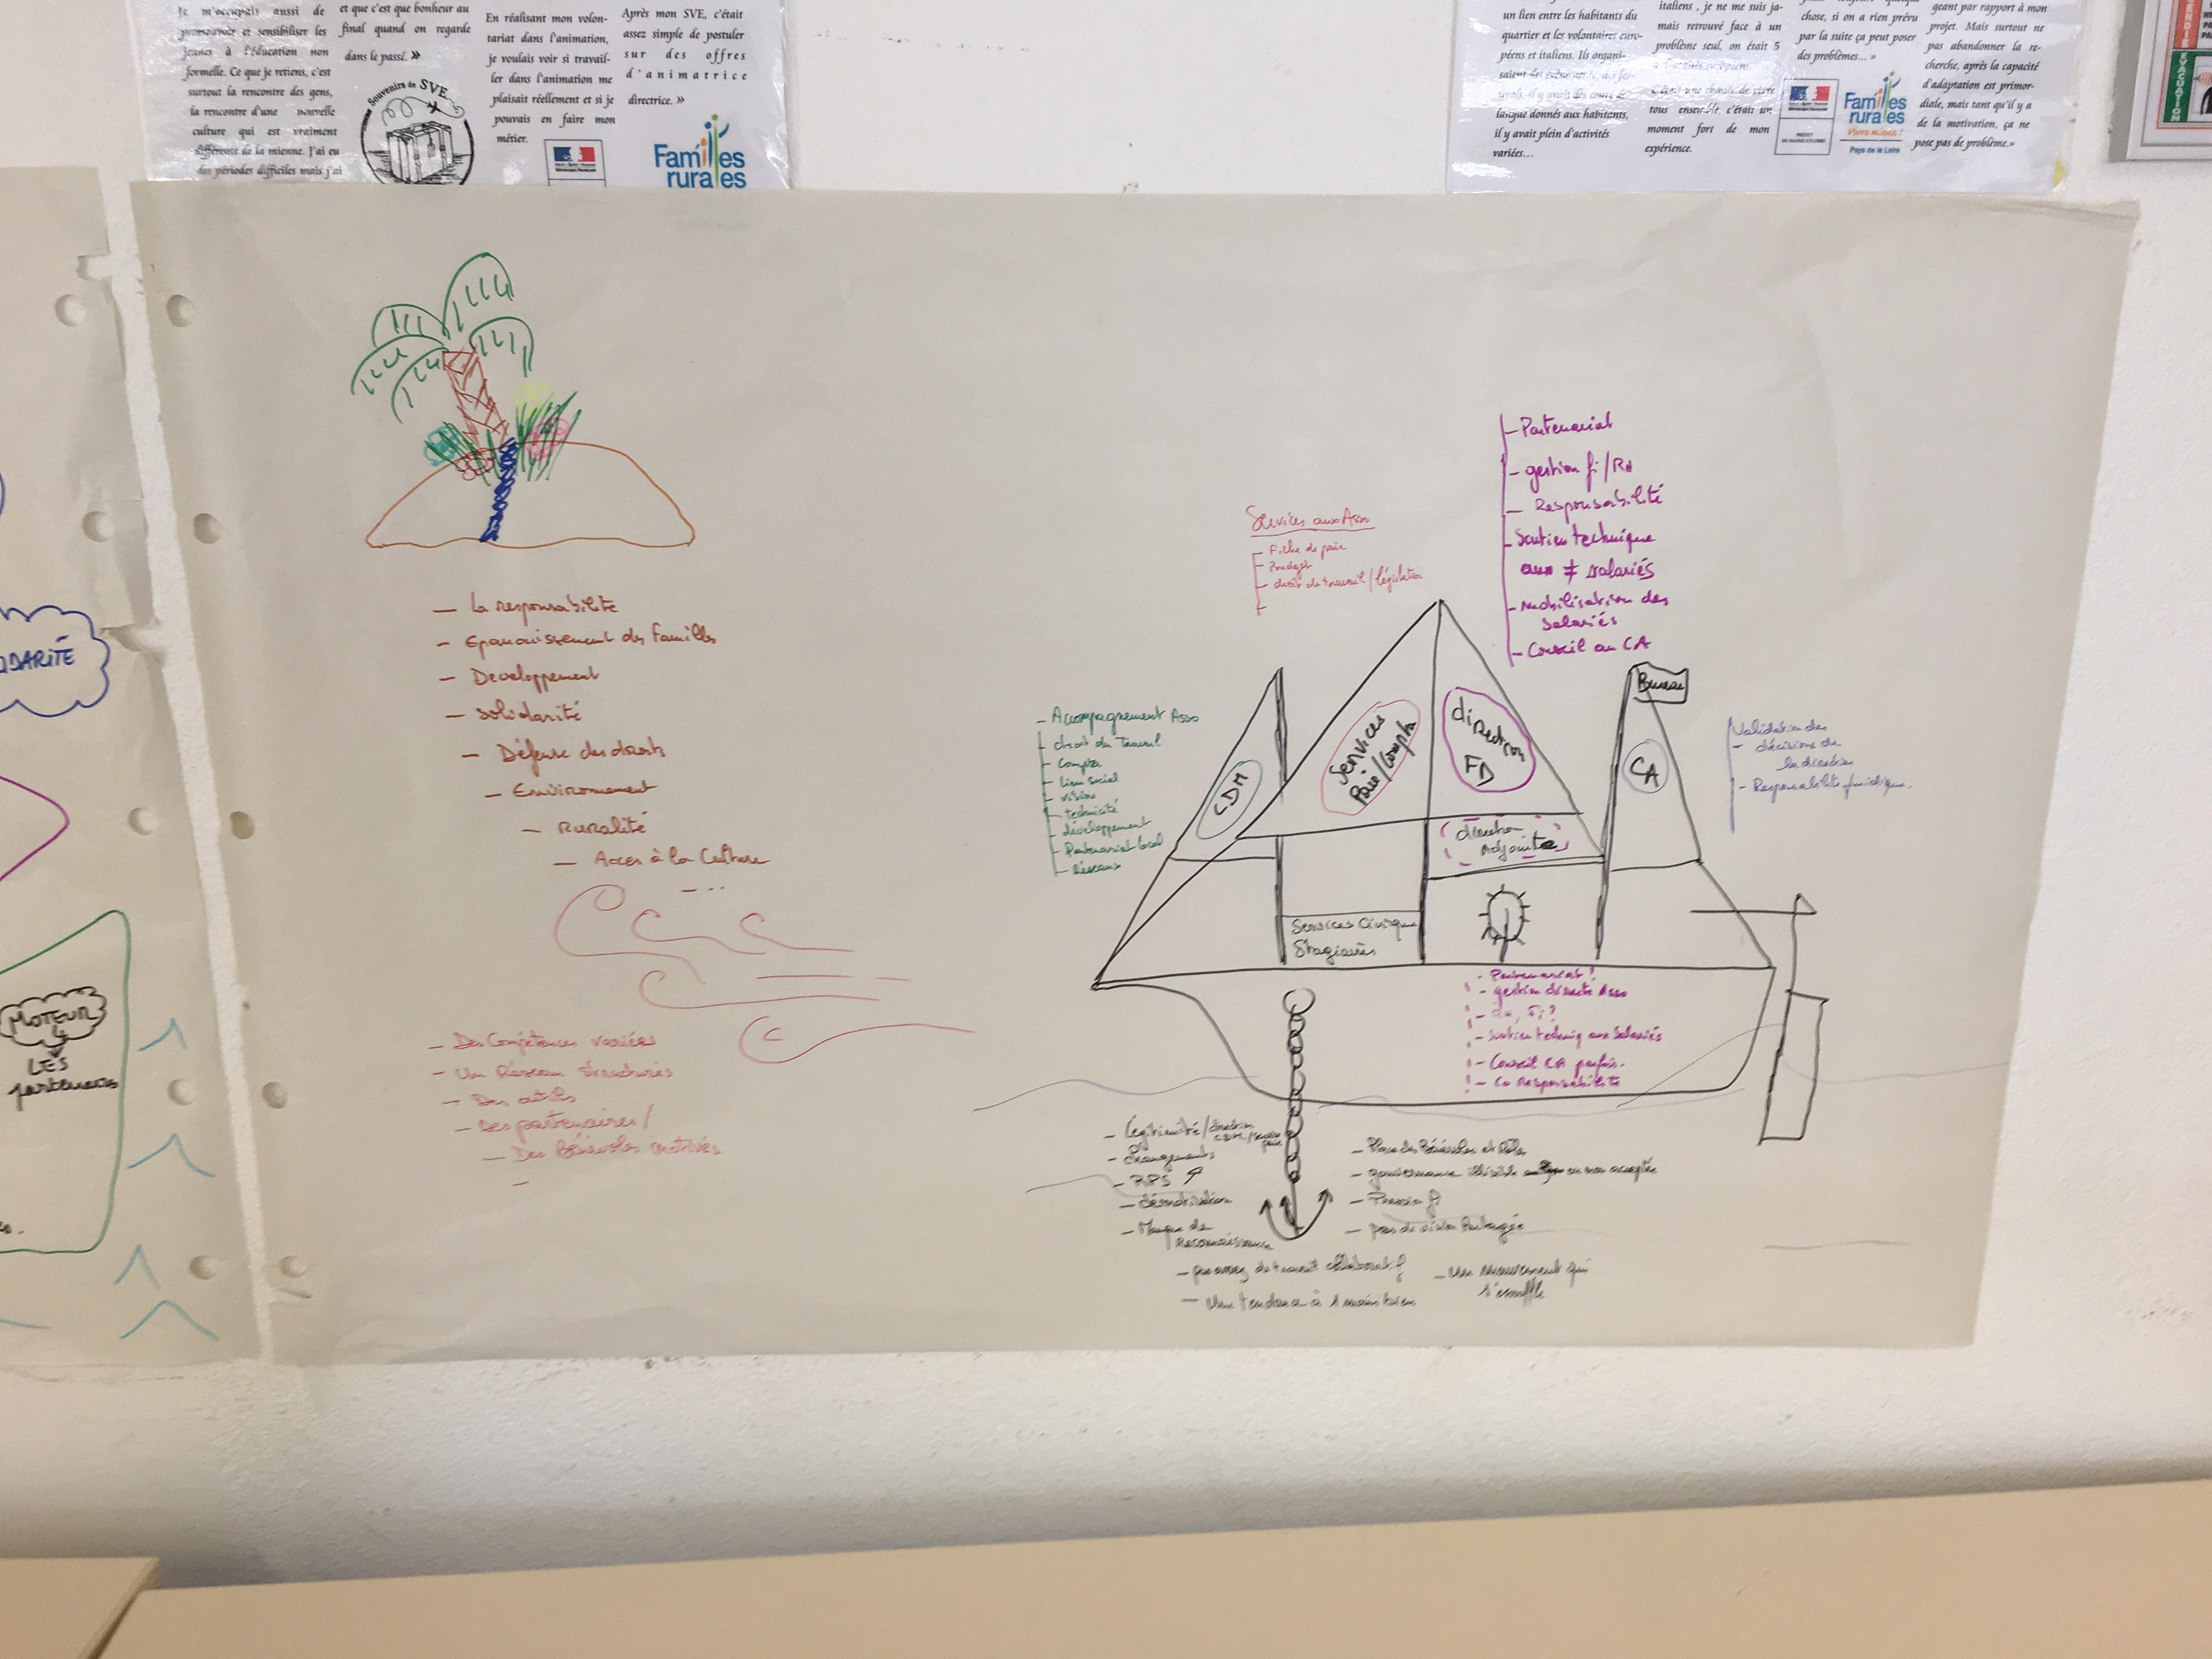 Je m'occupais aussi de
promouvoir et sensibiliser les
jeunes à l'éducation non
formelle. Ce que je retiens, c'est
surtout la rencontre des gens,
la rencontre d'une nouvelle
culture qui est vraiment
différente de la mienne. J'ai eu
des périodes difficiles mais j'ai
et que c'est que bonheur au
final quand on regarde
dans le passé. »
Souvenirs de SVE
En réalisant mon volon-
tariat dans l'animation,
je voulais voir si travail-
ler dans l'animation me
plaisait réellement et si je
pouvais en faire mon
métier.
Après mon SVE, c'était
assez simple de postuler
sur des offres
d'animatrice
directrice. »
Familles
rurales
un lien entre les habitants du
quartier et les volontaires euro-
péens et italiens. Ils organi-
langue donnés aux habitants,
il y avait plein d'activités
variées...
italiens , je ne me suis ja-
mais retrouvé face à un
problème seul, on était 5
C'était une chance de vivre
tous ensemble, c'était un
moment fort de mon
expérience.
chose, si on a rien prévu
par la suite ça peut poser
des problèmes... »
Familles
rurales
Vivre mieux !
Pays de la Loire
geant par rapport à mon
projet. Mais surtout ne
pas abandonner la re-
cherche, après la capacité
d'adaptation est primor-
diale, mais tant qu'il y a
de la motivation, ça ne
pose pas de problème.»
EVACUATION
IDARITÉ
MOTEUR
LES
partenaires
- la responsabilité
- Epanouissement des familles
- Developpement
- solidarité
- Défense des droits
- Environnement
- Ruralité
- Acces à la Culture
- ...
- Des Compétences variées
- Un Réseau structurés
- Des outils
- Des partenaires /
- Des Bénévoles motivés
-
Services aux Asso
- Fiche de paie
- Budget
- droit du travail / législation
- Partenariat
- gestion fi / RH
- Responsabilité
- Soutien technique
aux ≠ salariés
- Mobilisation des
salariés
- Conseil au CA
- Accompagnement Asso
- droit du Travail
- Compta
- lien social
- vision
- technicité
- développement
- Partenariat local
- Réseaux
CDM
Services
Paie/Compta
direction
FD
direction
Adjointe
Bureau
CA
Validation des
- décisions de
la direction
- Responsabilité juridique.
Services Civique
Stagiaires
- Partenariat !
- gestion directe Asso
- RH, Fi ?
- Soutien techniq aux salariés
- Conseil CA parfois.
- Co responsabilité
- Légitimité / direction
- Changements
- RPS ↗
- démotivation
- Manque de
Reconnaissance
- pas assez de travail collaboratif
- Une tendance à 1 moins bien
- Place des Bénévoles et Rôles
- gouvernance illisible ou non acceptée
- Pression fi
- pas de vision Partagée
- Un mouvement qui
s'essouffle